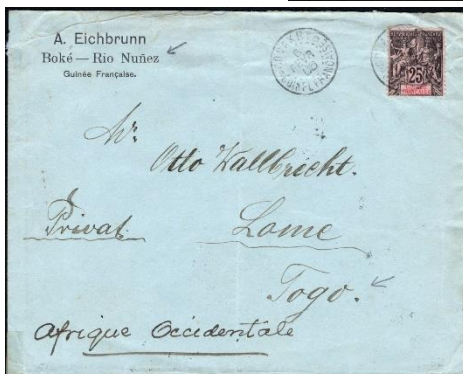 A. Eichbrunn
Boké — Rio Nuñez
Guinée Française.
25
Mr.
Otto Wallbrecht.
Privat
Lome
Togo.
Afrique Occidentale